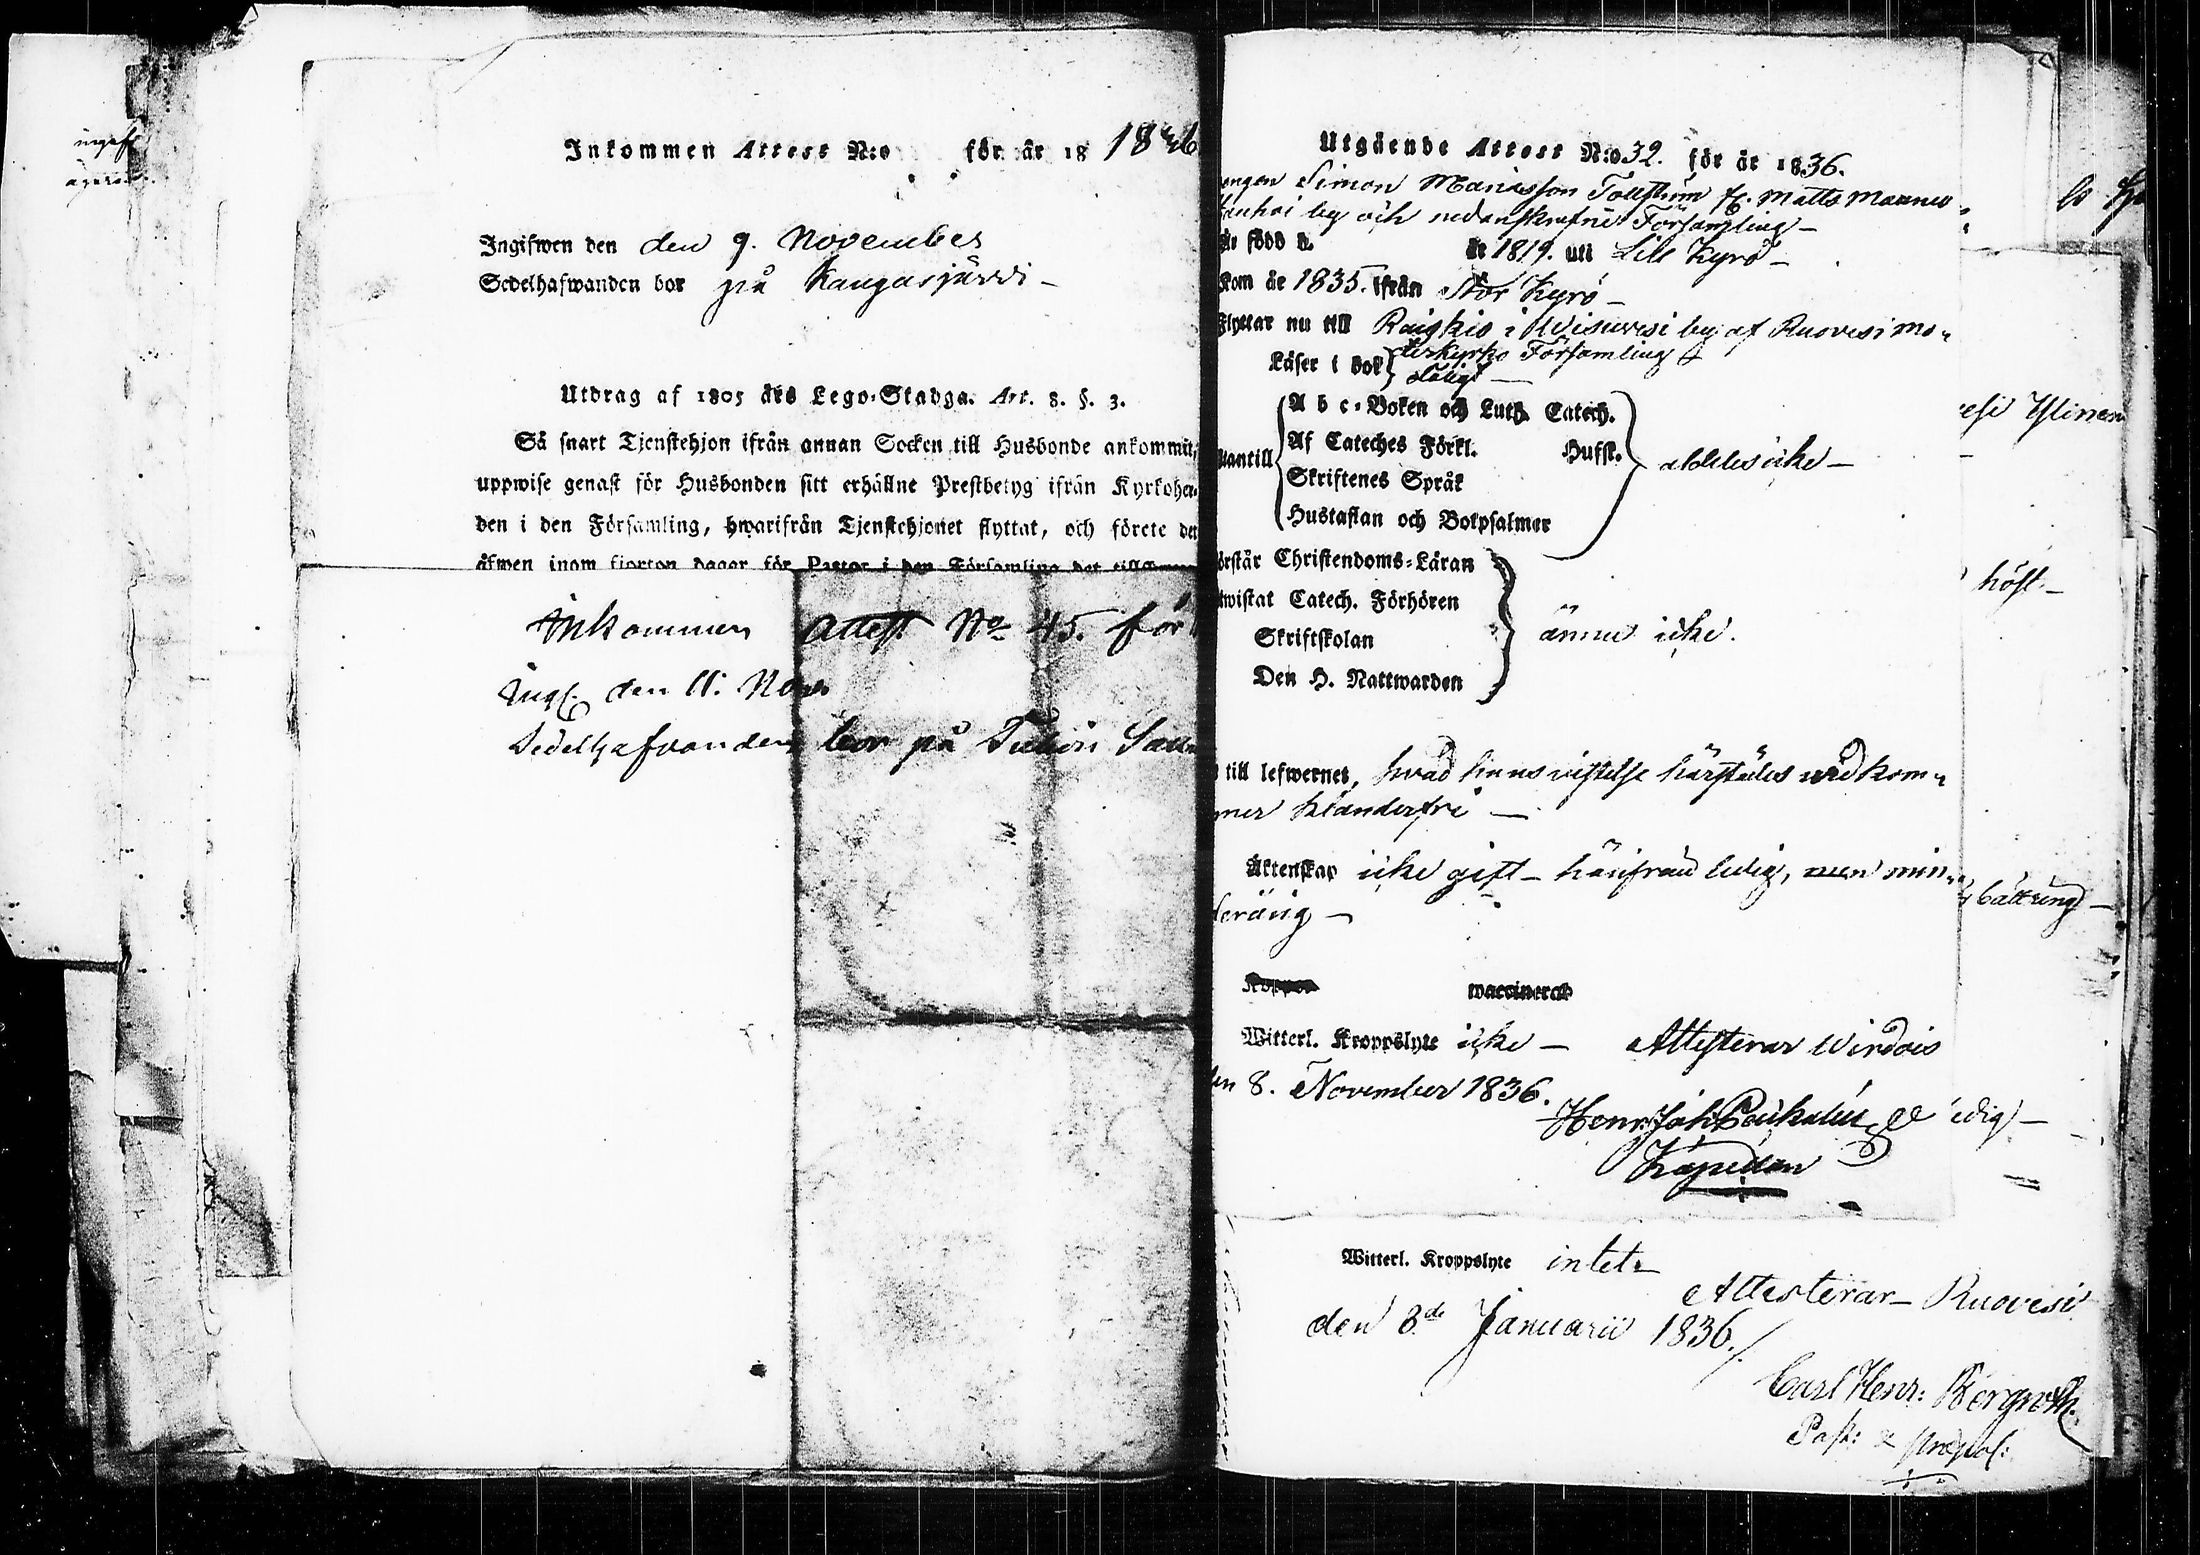 Inkommen Attest N:o för år 18 1836
Ingifwen den den 9. November
Sedelhafwanden bor på Kangasjärvi –
Utdrag af 1805 års Lego-Stadga. Art. 8. §. 3.
Så snart Tjenstehjon ifrån annan Socken till Husbonde ankommit,
uppwise genast för Husbonden sitt erhållne Prestbetyg ifrån Kyrkoher-
den i den Församling, hwarifrån Tjenstehjonet flyttat, och förete det
äfwen inom fjorton dagar för Pastor i den Församling det
Inkommen Attest No 45. för
Ingf. den 11. Nov
Sedelhafvanden bor på
Utgående Attest N:o 32. för år 1836.
Simon Mariasson Tollström fr. Matts
by och nedanskrefne Församling –
Är född d. år 1819. uti Lill Kyrö –
kom år 1835. ifrån Stor Kyrö –
Flyttar nu till i Wisuvesi by af Ruovesi mo-
derkyrko Församling
Läser i bok dåligt –
Utantill
A b c-Boken och Luth. Catech.
Af Cateches Förkl. Husft.
Skriftenes Språk
Hustaflan och Botpsalmer
alldeles icke –
Förstår Christendoms-Läran
Bewistat Catech. Förhören
Skriftskolan
Den H. Nattwarden
ännu icke.
till lefwernet, hvad hans vistelse härstädes vidkom-
mer klanderfri –
Äktenskap icke gift – härifrån ledig, men min-
derårig –
vaccinerad
Witterl. Kroppslyte icke – Attesterar Wirdois
den 8. November 1836.
Henr. Joh.
Kapellan
höst –
bättring –
ledig –
Witterl. Kroppslyte intet –
Attesterar – Ruovesi
den 8de Januarii 1836./.
Carl Henr: Bergroth.
Past: & Præpos: